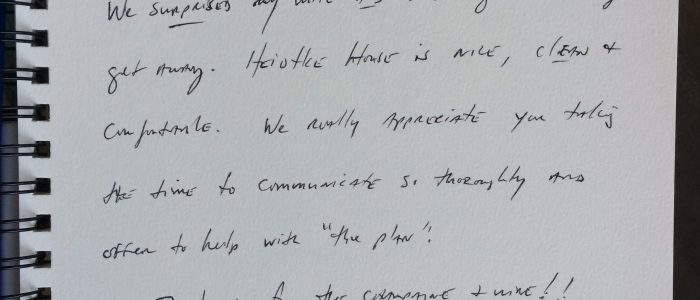 We SURPRISED my
get away. Heidtke House is nice, clean &
comfortable. We really appreciate you taking
the time to communicate so thoroughly and
offer to help with "the plan".
for the champagne & wine!!